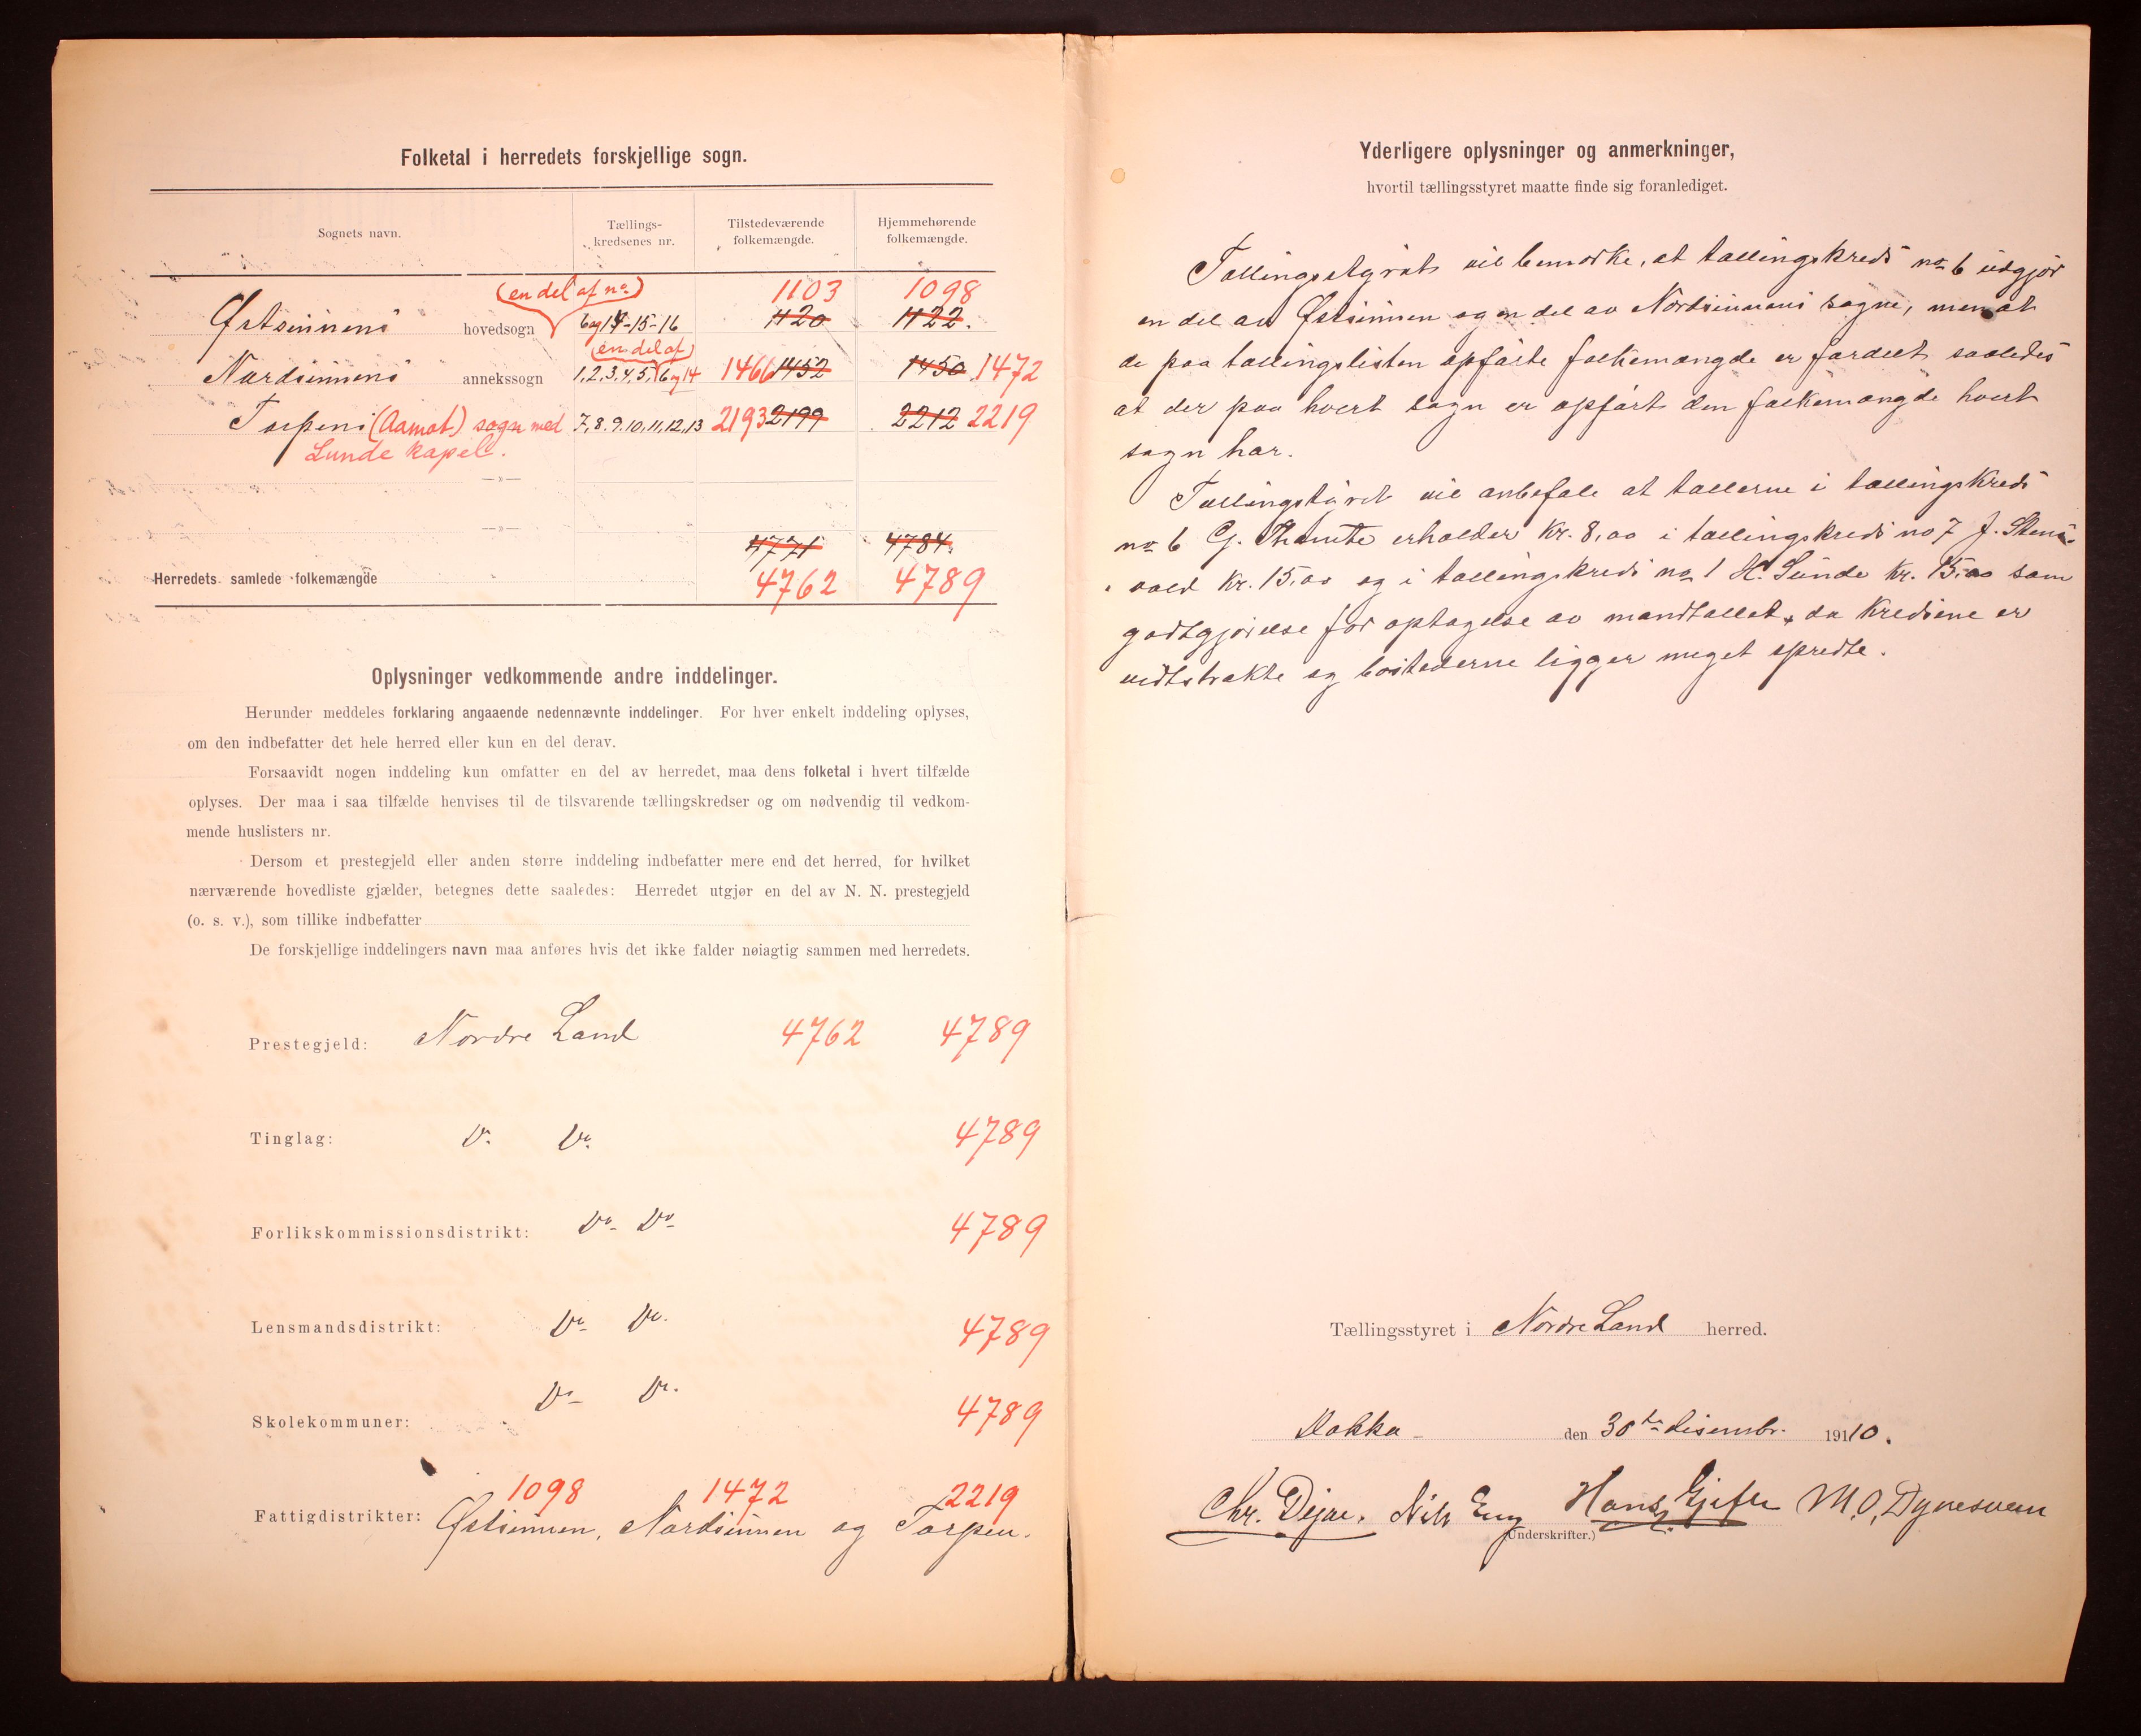 Folketal i herredets forskjellige sogn.
Sognets navn.
Tællings-
kredsenes nr.
Tilstedeværende
folkemængde.
Hjemmehørende
folkemængde.
(en del af no) 1103 1098
Østsinnens hovedsogn 6 og 14-15-16 1120 1122.
(en del af)
Nordsinnens annekssogn 1,2,3,4,5, 6 og 14 1466 1452 1450 1472
Torpens (Aamot) sogn med 7,8,9,10,11,12,13 2193 2199 2212 2219
Lunde kapel.
—»—
—»—
4771 4784.
Herredets samlede folkemængde 4762 4789
Oplysninger vedkommende andre inddelinger.
Herunder meddeles forklaring angaaende nedennævnte inddelinger. For hver enkelt inddeling oplyses,
om den indbefatter det hele herred eller kun en del derav.
Forsaavidt nogen inddeling kun omfatter en del av herredet, maa dens folketal i hvert tilfælde
oplyses. Der maa i saa tilfælde henvises til de tilsvarende tællingskredser og om nødvendig til vedkom-
mende huslisters nr.
Dersom et prestegjeld eller anden større inddeling indbefatter mere end det herred, for hvilket
nærværende hovedliste gjælder, betegnes dette saaledes: Herredet utgjør en del av N. N. prestegjeld
(o. s. v.), som tillike indbefatter
De forskjellige inddelingers navn maa anføres hvis det ikke falder nøiagtig sammen med herredets.
Prestegjeld: Nordre Land 4762 4789
Tinglag: Do. Do. 4789
Forlikskommissionsdistrikt: Do Do 4789
Lensmandsdistrikt: Do Do. 4789
Skolekommuner: Do Do. 4789
1098 1472 2219
Fattigdistrikter: Østsinnen, Nordsinnen og Torpen.
Yderligere oplysninger og anmerkninger,
hvortil tællingsstyret maatte finde sig foranlediget.
Tællingsstyret vil bemærke, at tællingskreds no 6 udgjør
en del av Østsinnen og en del av Nordsinnens sogne, men at
de paa tællingslisten opførte folkemængde er fordelt saaledes
at der paa hvert sogn er opført den folkemængde hvert
sogn har.
Tællingstyret vil anbefale at tællerne i tællingskreds
no 6 G. erholder kr. 8,00 i tællingskreds no 7 J. Stens-
vold kr. 15,00 og i tællingskreds no 1 H. Lunde kr. 15,00 som
godtgjørelse for optagelse av mandtallet, da kredsene er
vidtstrakte og bostederne ligger meget spredte.
Tællingsstyret i Nordre Land herred.
Dokka den 30te desembr. 1910.
Chr. Nils Eng Hans M.O. Dynesveen
(Underskrifter.)